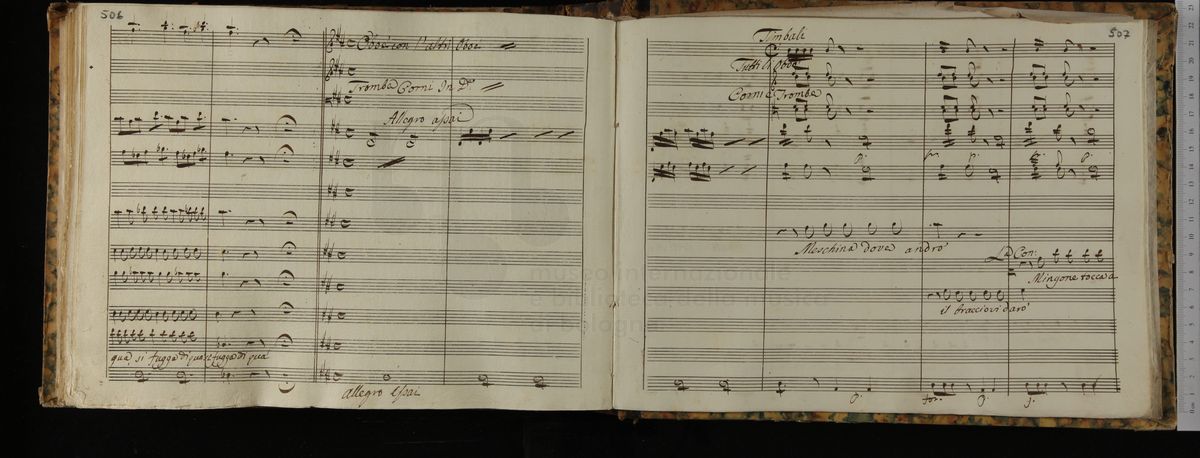 506
Oboè con l'altri Oboe
Trombe Corni In D.
Allegro assai
qua si fugga di qua si fugga di qua
Allegro assai
507
Timbali
Tutti li Oboe
Corni e Trombe
p.
for.
p.
p.
Meschina dove andrò
La Con:
Mingone tocca a
il braccio vi darò
p.
for.
p.
f.
museo internazionale
e biblioteca della musica
di bologna